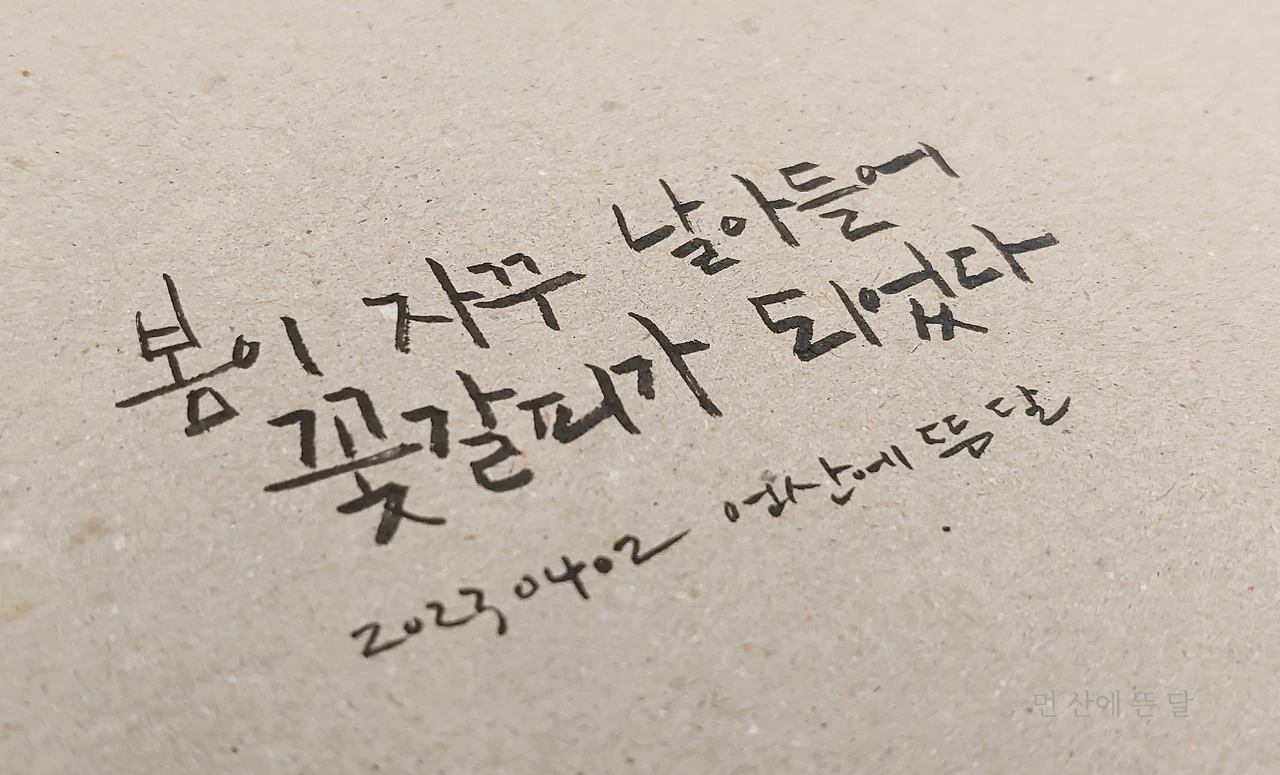 봄이 자꾸 날아들어
꽃갈피가 되었다
20230402 먼산에 뜬 달
먼 산에 뜬 달